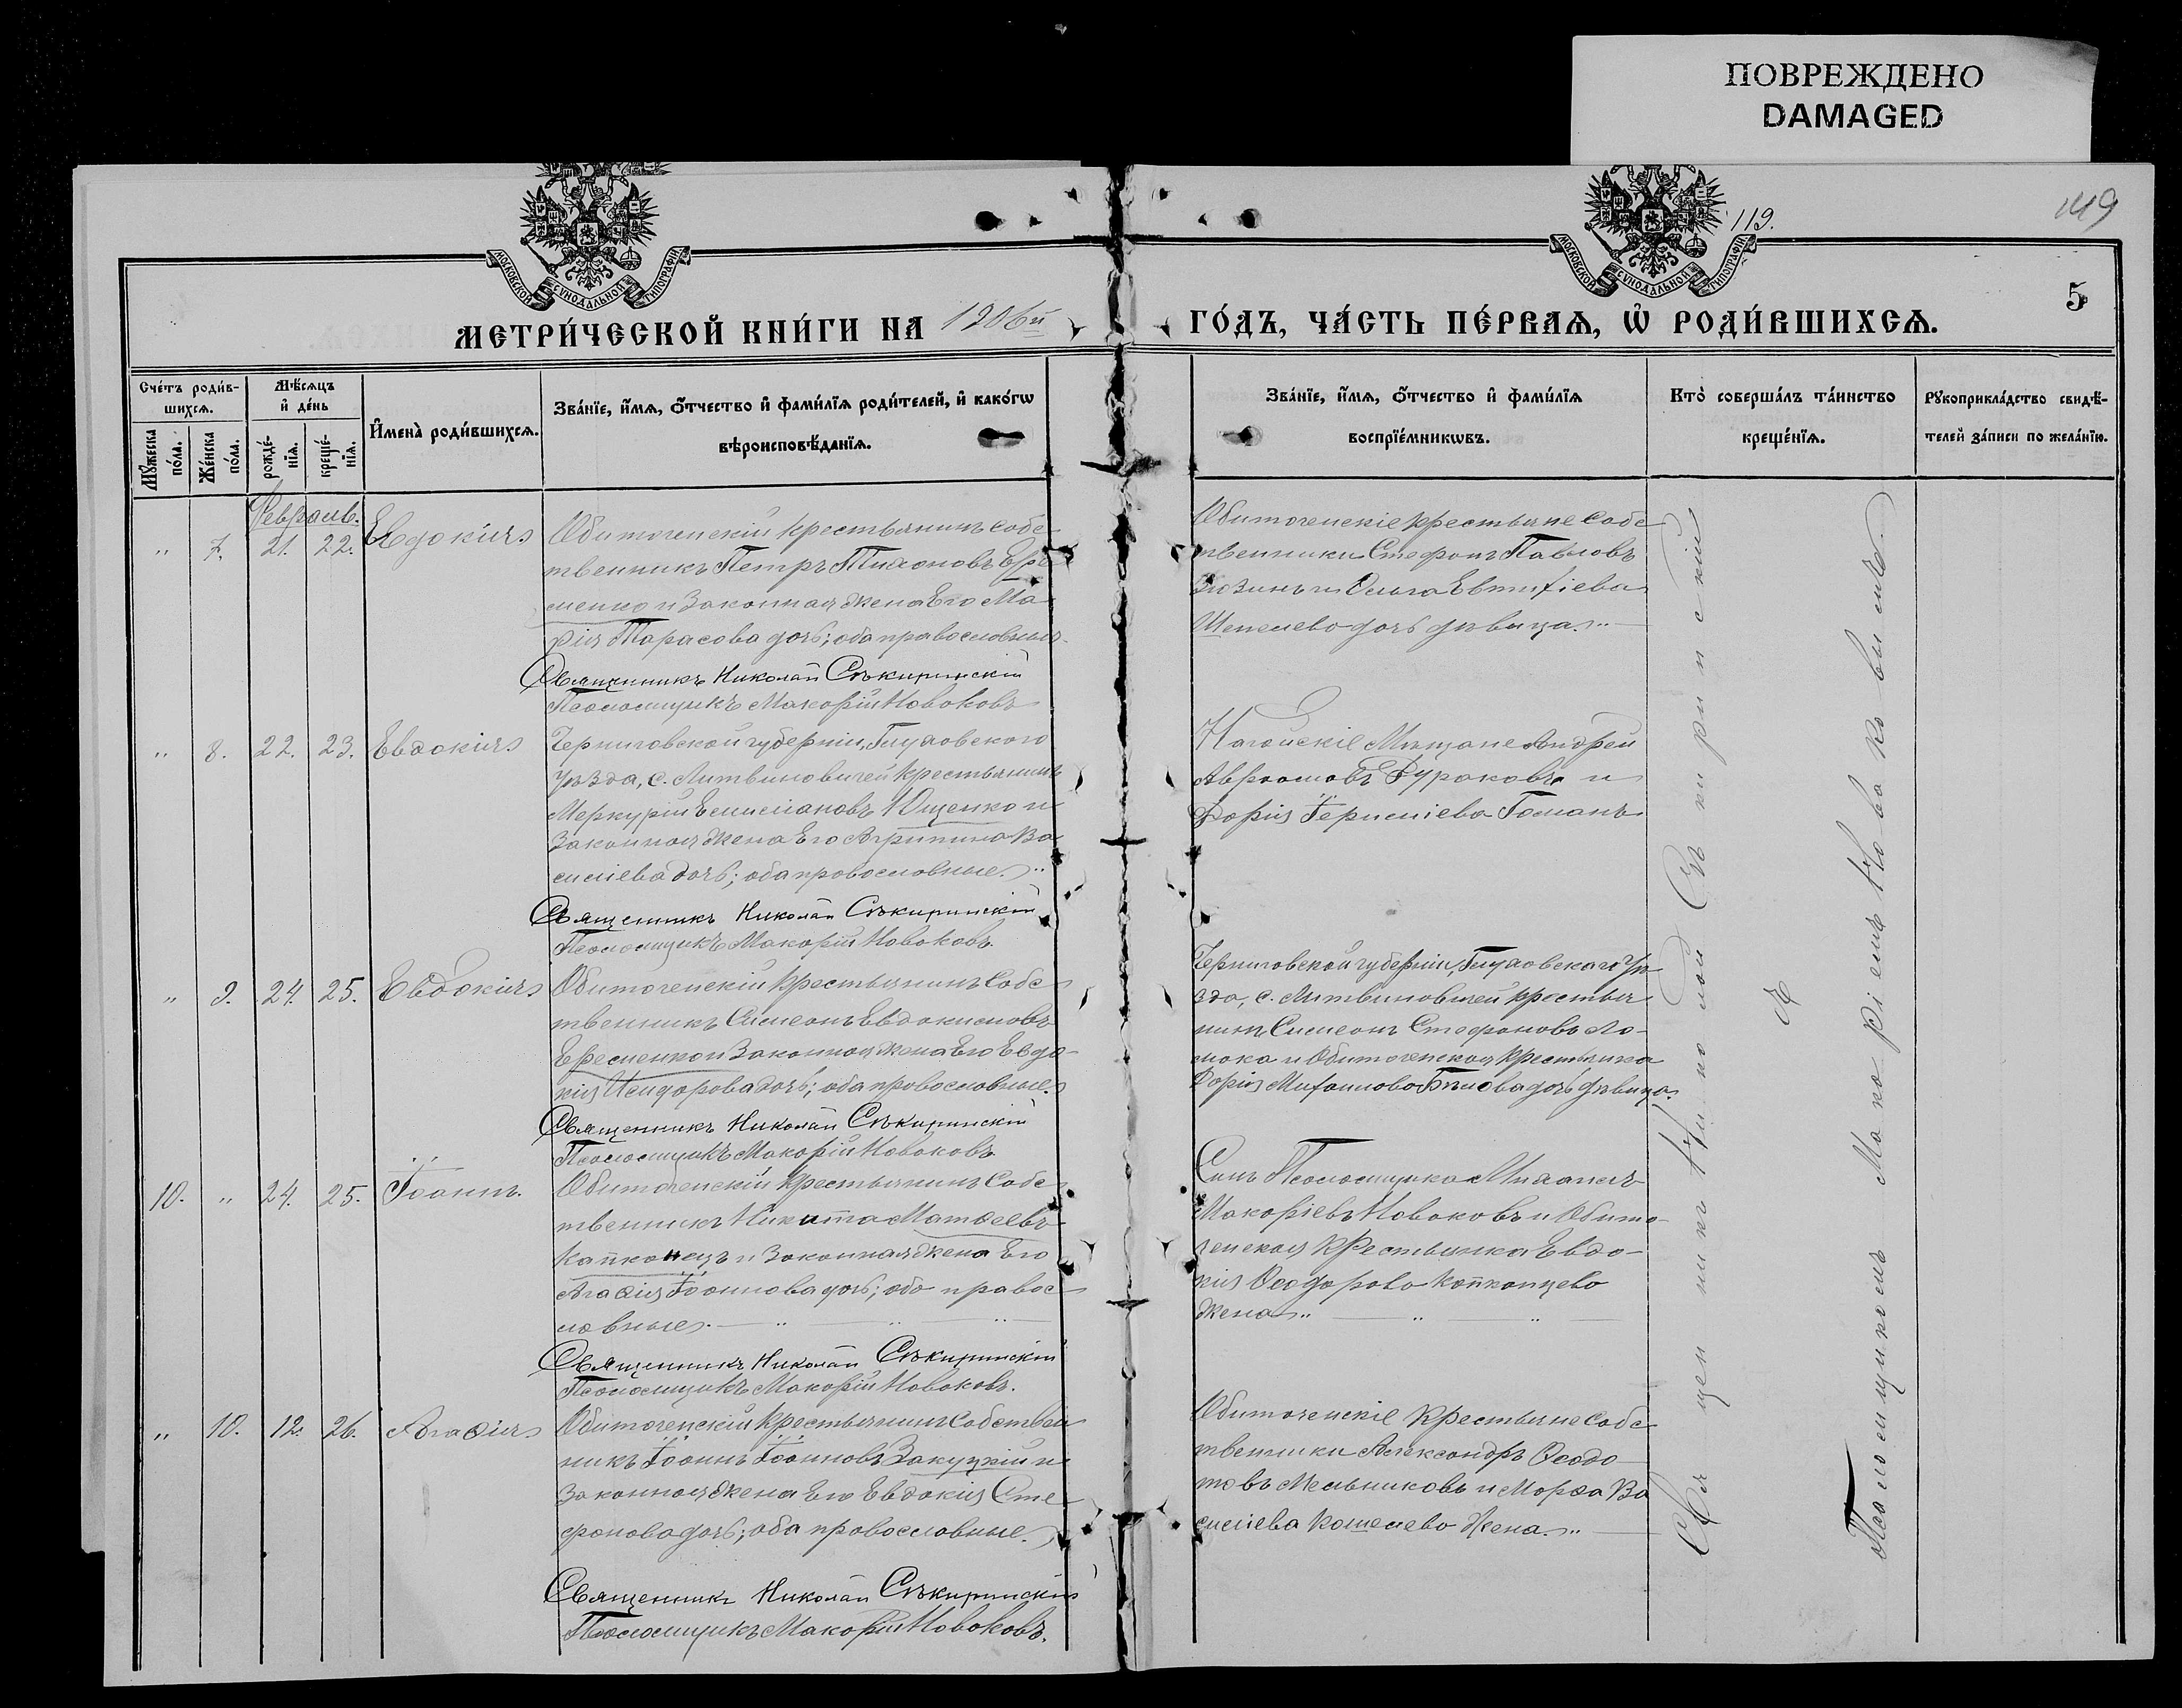 ПОВРЕЖДЕНО
DAMAGED
119.
149
5
МОСКОВСКОЙ СѴНОДАЛЬНОЙ ТИПОГРАФІИ
МОСКОВСКОЙ СѴНОДАЛЬНОЙ ТИПОГРАФІИ
МЕТРИ́ЧЕСКОЙ КНИ́ГИ НА 1906й
ГО́ДЪ, ЧА́СТЬ ПЕ́РВАѦ, Ѡ҆ РОДИ́ВШИХСѦ.
Сче́тъ роди́в-
шихсѧ.
Мѣ́сѧцъ
и҆ де́нь
Мꙋ́жеска
по́ла.
Же́нска
по́ла.
рожде́-
нїѧ.
креще́-
нїѧ.
И҆мена̀ роди́вшихсѧ.
Зва́нїе, и҆́мѧ, ѻ҆́тчество и҆ фами́лїѧ роди́телей, и҆ како́гѡ
вѣроисповѣ́данїѧ.
Зва́нїе, и҆́мѧ, ѻ҆́тчество и҆ фами́лїѧ
воспрїе́мникѡвъ.
Кто̀ соверша́лъ та́инство
креще́нїѧ.
Рꙋкоприкла́дство свидѣ́-
телей за́писи по жела́нїю.
Февраль.
" 7. 21. 22. Евдокія
Обиточенскій крестьянинъ собс
твенникъ Петръ Тихоновъ Ере
менко и Законная жена Его Ма
рія Тарасова дочь; оба православные
Священникъ Николай Сѣкиринскій
Псаломщикъ Макарій Новаковъ
Обиточенскіе крестьяне Собс
твенники Стефанъ Павловъ
и Ольга Евтихіева
Шепелева дочь дѣвица."
" 8. 22. 23. Евдокія
Черниговской губерніи, Глуховского
уѣзда, с. Литвиновичей крестьянинъ
Меркурій Емиліановъ Ющенко и
Законная жена Его Агрипина Ва
силіева дочь; оба православные."
Священникъ Николай Сѣкиринскій
Псаломщикъ Макарій Новаковъ.
Ногайскіе Мѣщане Андрей
Авраамовъ Бураковъ и
Дарія Гоманъ
" 9. 24. 25. Евдокія
Обиточенскій крестьянинъ Собс
твенникъ Симеонъ Евдокимовъ
Еременко и Законная жена Его Евдо-
кія Исидорова дочь; оба православные.
Священникъ Николай Сѣкиринскій
Псаломщикъ Макарій Новаковъ
Черниговской губерніи, Глуховского уѣ
зда, с. Литвиновичей крестья
нинъ Симеонъ Стефановъ Ло-
мака и Обиточенская крестьянка
Дарія Михаилова Бѣлова дочь дѣвица.
10. " 24. 25. Іоаннъ.
Обиточенскій крестьянинъ Собс
твенникъ Никита Матѳеевъ
Капканецъ и Законная жена Его
Агаѳія Іоаннова дочь; оба правос
лавные.
Священникъ Николай Сѣкиринскій
Псаломщикъ Макарій Новаковъ.
Сынъ Псаломщика Михаилъ
Макаріевъ Новаковъ и Обито-
ченская Крестьянка Евдо-
кія Ѳеодорова Капканцева
жена."
" 10. 12. 26. Агаѳія
Обиточенскій Крестьянинъ Собствен
никъ Іоаннъ Іоанновъ Закуцкій и
Законная жена Его Евдокія Сте
фанова дочь; оба православные.
Священникъ Николай Сѣкиринскій
Псаломщикъ Макарій Новаковъ.
Обиточенскіе Крестьяне Собс
твенники Александръ Ѳеодо
товъ Мельниковъ и Марѳа Ва
силіева Кошелева Жена."
Священникъ Николай Сѣкиринскій
съ
Псаломщикомъ Макаріемъ Новаковымъ.